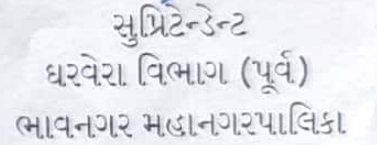 સુપ્રિટેન્ડેન્ટ
ઘરવેરા વિભાગ (પૂર્વ)
ભાવનગર મહાનગરપાલિકા